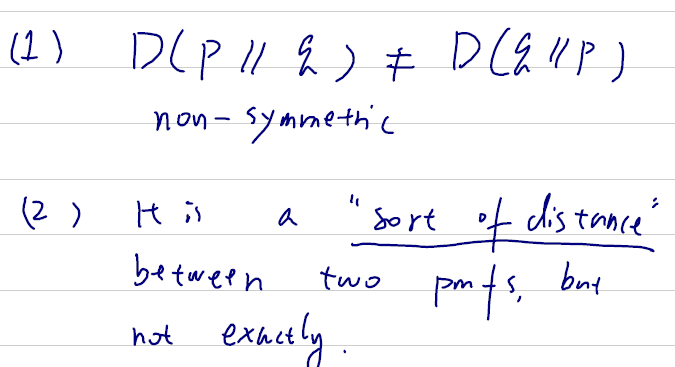 (1) D(P || q) ≠ D(q || P)
non-symmetric
(2) It is a "sort of distance"
between two pmfs, but
not exactly.